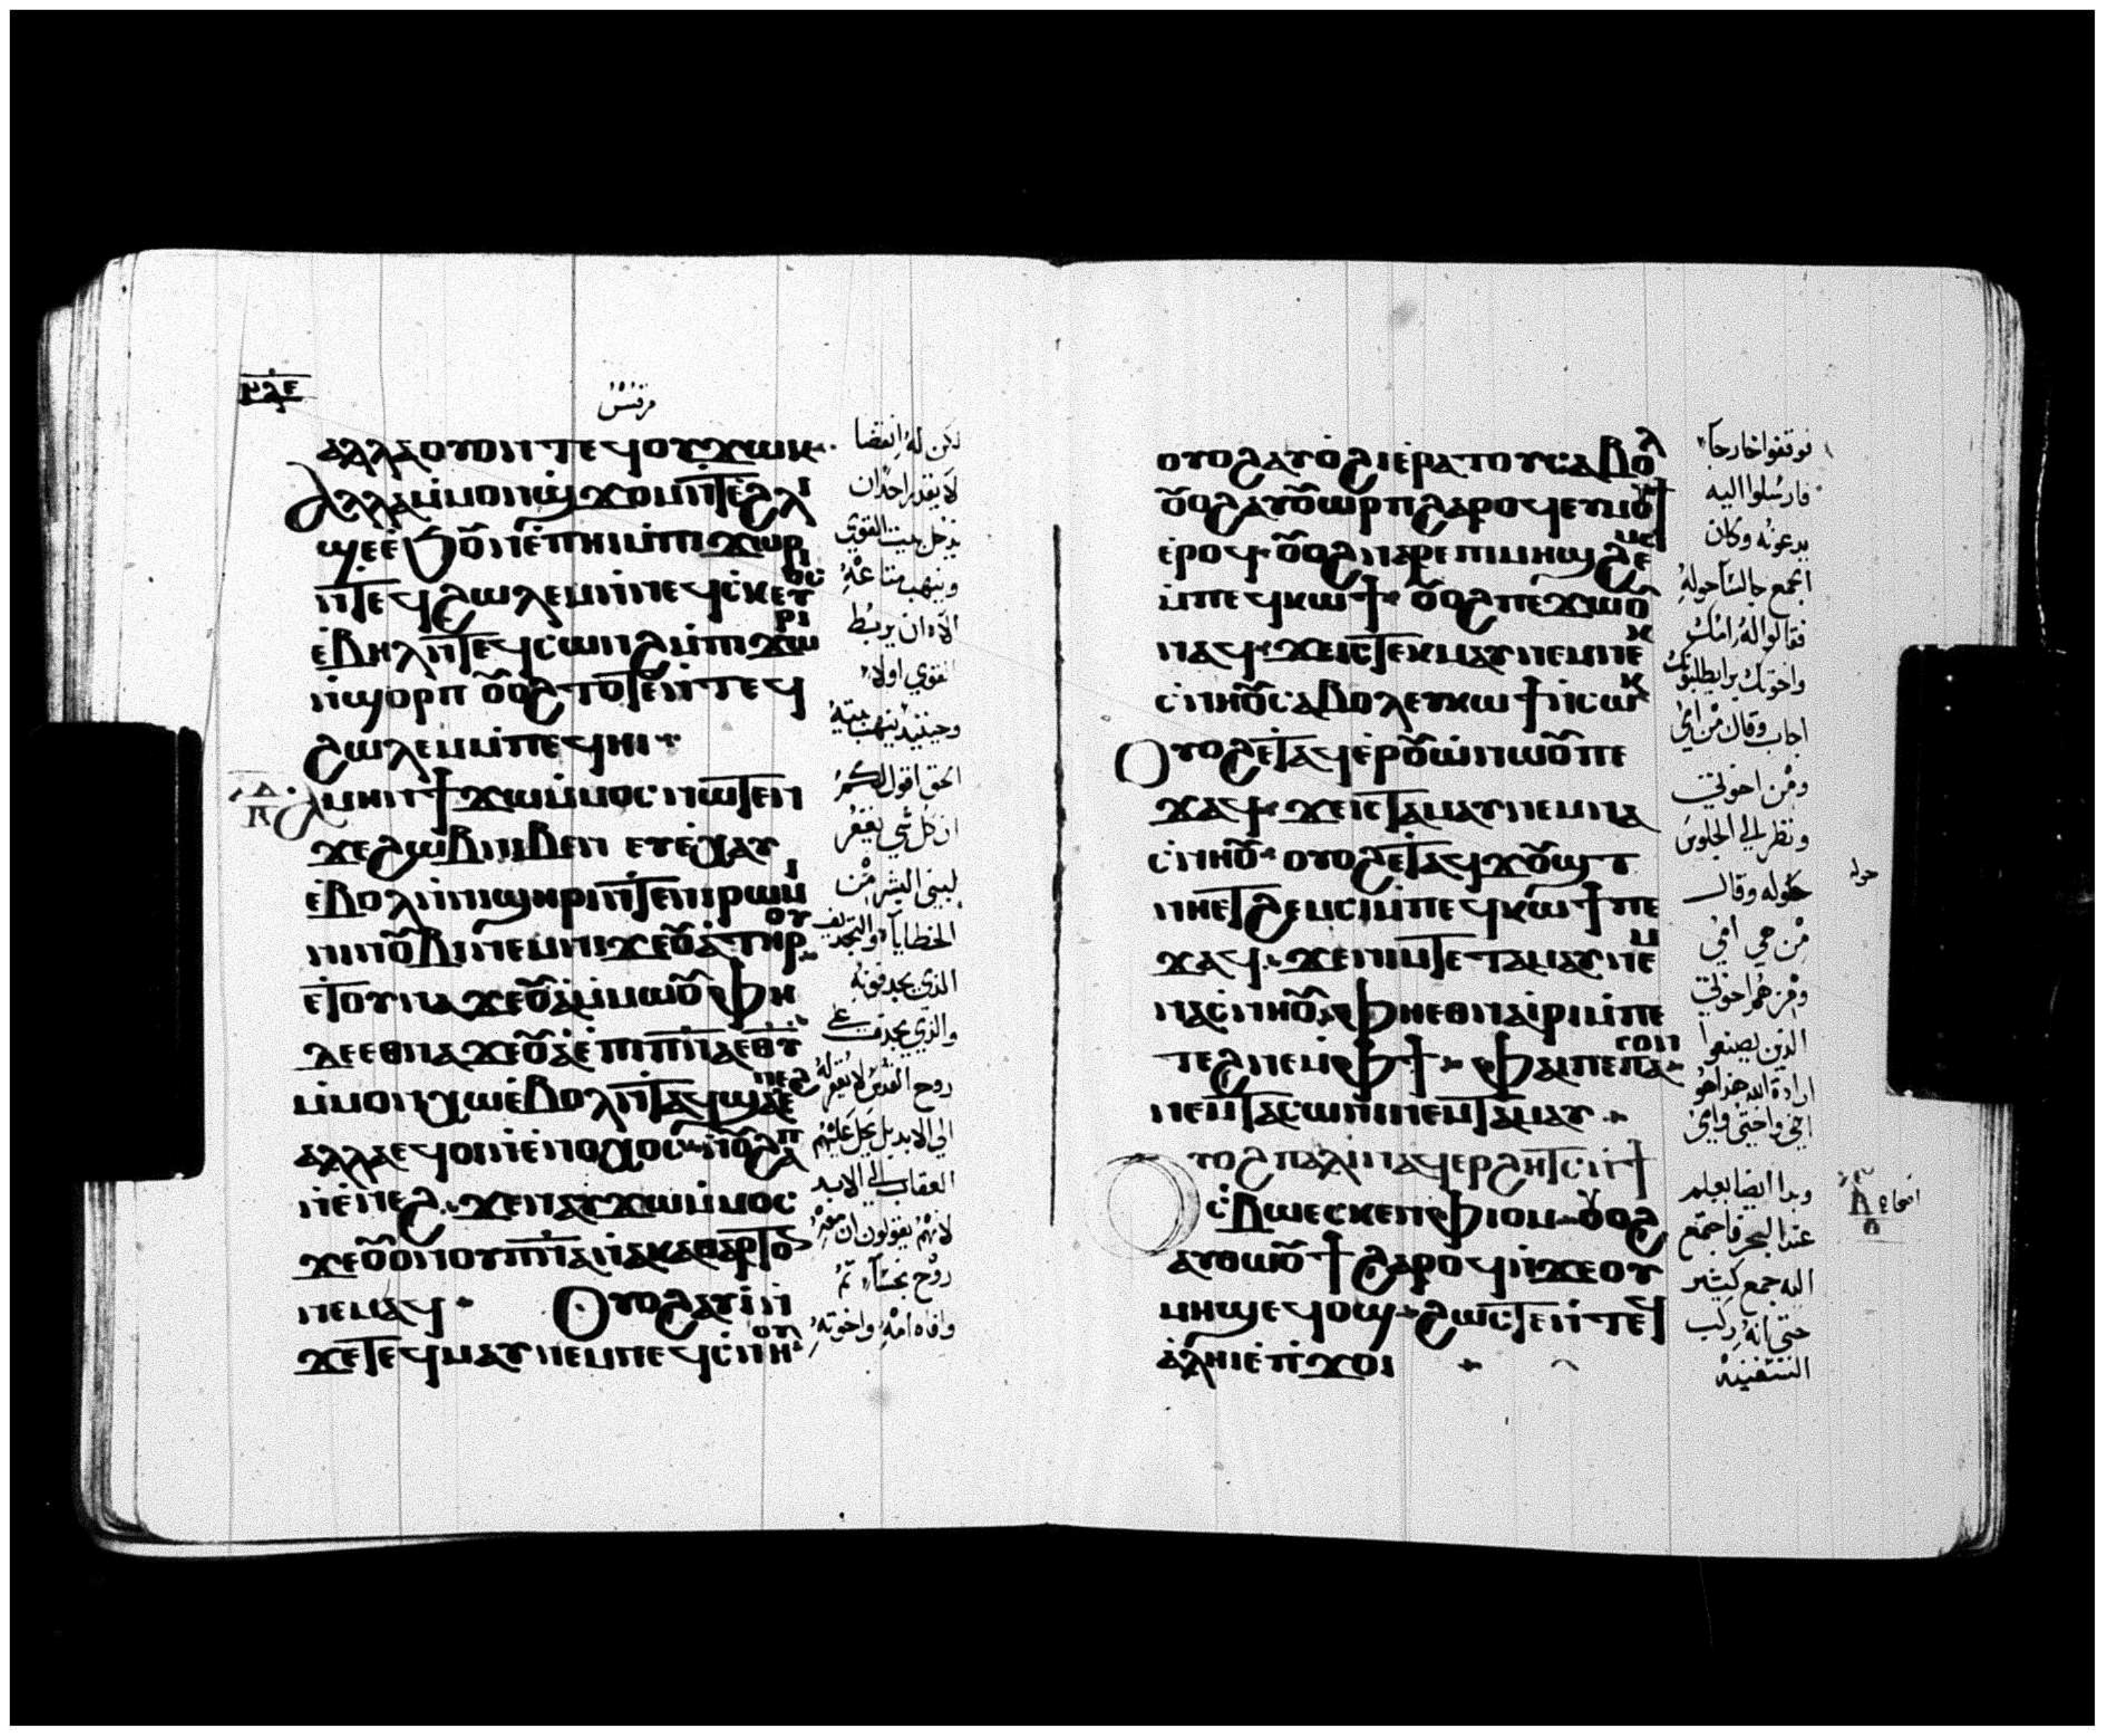 مرقس
ⲁⲗⲗⲁⲟⲩⲟⲛⲧⲉϥⲟⲩϫⲱⲕ
ⲁⲗⲗⲁⲙ̇ⲙⲟⲛϣϫⲟⲙⲛ̄ⲧⲉϩⲗⲓ
ϣⲉⲉ̇ϧⲟⲩⲛⲉ̇ⲡⲏⲓⲙ̇ⲡⲓϫⲱⲣⲓ
ⲛ̄ⲧⲉϥϩⲱⲗⲉⲙⲛ̇ⲛⲉϥⲥ̇ⲕⲉⲩⲟⲥ
ⲉ̇ⲃⲏⲗⲛ̄ⲧⲉϥⲥⲱⲛϩⲙ̇ⲡⲓϫⲱⲣⲓ
ⲛ̇ϣⲟⲣⲡ ⲟ̅ⲟϩ ⲧⲟⲧⲉⲛ̇ⲧⲉϥ
ϩⲱⲗⲉⲙⲙ̇ⲡⲉϥⲏⲓ
ⲁⲙⲏⲛϯϫⲱⲙ̇ⲙⲟⲥⲛⲱⲧⲉⲛ
ϫⲉϩⲱⲃⲛⲓⲃⲉⲛ ⲉⲩⲉ̇ⲭⲁⲩ
ⲉ̇ⲃⲟⲗⲛ̇ⲛⲓϣⲏⲣⲓⲛ̄ⲧⲉⲛⲓⲣⲱⲙⲓ
ⲛⲓⲛⲟ̅ⲃⲓⲛⲉⲙⲛⲓϫⲉⲟ̅ⲁ̇ⲧⲏⲣⲟⲩ
ⲉ̇ⲧⲟⲩⲛⲁϫⲉⲟ̅ⲁ̇ⲙ̇ⲙⲱⲟ̅ ⲫⲏ
ⲇⲉⲉⲑⲛⲁϫⲉⲟ̅ⲁ̇ⲉ̇ⲡⲓⲡ̅ⲛ̅ⲁⲉⲑⲩ
ⲙ̇ⲙⲟⲛⲭⲱⲉ̇ⲃⲟⲗⲛ̄ⲧⲁϥϣⲁⲉⲛⲉϩ
ⲁⲗⲗⲁⲉϥⲟⲓⲛ̇ⲉⲛⲟⲭⲟⲥⲛ̇ⲟ̅ϩⲁⲡ
ⲛ̇ⲉ̇ⲛⲉϩ ϫⲉⲛⲁⲩϫⲱⲙ̇ⲙⲟⲥ
ϫⲉⲟ̅ⲟⲛⲟⲩⲡ̅ⲛ̅ⲁⲛ̇ⲁⲕⲁⲑⲁⲣⲧⲟⲥ
ⲛⲉⲙⲁϥ ⲟⲩⲟϩⲁⲩⲓ̇ⲛ̇
ϫⲉⲧⲉϥⲙⲁⲩⲛⲉⲙⲛⲉϥⲥ̇ⲛⲏⲟⲩ
لكن له انقضا
لا يقدر احد ان
يدخل بيت القوي
وينهب متاعه
الا ان يربط
القوي اولا
وحينيذ ينهب بيته
الحق اقول لكم
ان كل شي يغفر
لبني البشر من
الخطايا والتجديف
الذي يجدفونه
والذي يجدف علي
روح القدس لا يغفر له
الي الابد بل يحل عليهم
العقاب الي الابد
لانهم يقولون ان معه
روح نجسا ثم
وافاه امه واخوته
ⲟⲩⲟϩⲁⲩⲟ̇ϩⲓⲉ̇ⲣⲁⲧⲟⲩⲥⲁⲃⲟⲗ
ⲟ̅ⲟϩⲁⲩⲟ̅ⲱⲣⲡϩⲁⲣⲟϥⲉⲩⲙⲟⲩϯ
ⲉ̇ⲣⲟϥ ⲟ̅ⲟϩⲛⲁⲣⲉⲡⲓⲙⲏϣϩⲉⲙⲥⲓ
ⲙ̇ⲡⲉϥⲕⲱϯ ⲟ̅ⲟϩⲡⲉϫⲱⲟ̅
ⲛⲁϥ ϫⲉⲓⲥⲧⲉⲕⲙⲁⲩⲛⲉⲙⲛⲉⲕ
ⲥ̇ⲛⲏⲟ̅ⲥⲁⲃⲟⲗⲉⲩⲕⲱϯⲛ̇ⲥⲱⲕ
ⲟⲩⲟϩⲉⲧⲁϥⲉ̇ⲣⲟ̅ⲱ̇ⲛⲱⲟ̅ⲡⲉ
ϫⲁϥ ϫⲉⲓⲥⲧⲁⲙⲁⲩⲛⲉⲙⲛⲁ
ⲥ̇ⲛⲏⲟ̅ ⲟⲩⲟϩⲉⲧⲁϥϫⲟ̅ϣⲧ
ⲛⲏⲉⲧϩⲉⲙⲥⲓⲙ̇ⲡⲉϥⲕⲱϯⲡⲉ
ϫⲁϥ ϫⲉⲛⲓⲙⲧⲉⲧⲁⲙⲁⲩⲛⲉⲙ
ⲛⲁⲥ̇ⲛⲏⲟ̅ ⲫⲏⲉⲑⲛⲁⲓ̇ⲣⲓⲙ̇ⲡⲉ
ⲧⲉϩⲛⲉⲙ̇ⲫϯ ⲫⲁⲓⲡⲉⲡⲁⲥⲟⲛ
ⲛⲉⲙⲧⲁⲥⲱⲛⲓⲛⲉⲙⲧⲁⲙⲁⲩ
ⲩⲟϩⲡⲁⲗⲓⲛⲁϥⲉⲣϩⲏⲧⲥⲛ̇ϯ
ⲥ̇ⲃⲱⲉⲥⲕⲉⲛⲫⲓⲟⲙ ⲟ̅ⲟϩ
ⲁⲩⲑⲱⲟ̅ϯϩⲁⲣⲟϥⲛ̇ϫⲉⲟⲩ
ⲙⲏϣⲉϥⲟϣ ϩⲱⲥⲧⲉⲛ̇ⲧⲉϥ
ⲁ̇ⲗⲏⲓⲉ̇ⲡ̇ϫⲟⲓ
فوقفوا خارجا
فارسلوا اليه
يدعونه وكان
الجمع جالسا حوله
فقالوا له امك
واخوتك برا يطلبونك
اجاب وقال من امي
ومن اخوتي
ونظر الي الجلوس
حوله وقال
من هي امي
ومن هم اخوتي
الذين يصنعوا
ارادة الله هذا هو
اخي واختي وامي
وبدا ايضا يعلم
عند البحر فاجتمع
اليه جمع كثير
حتي انه ركب
السفينة
حوله